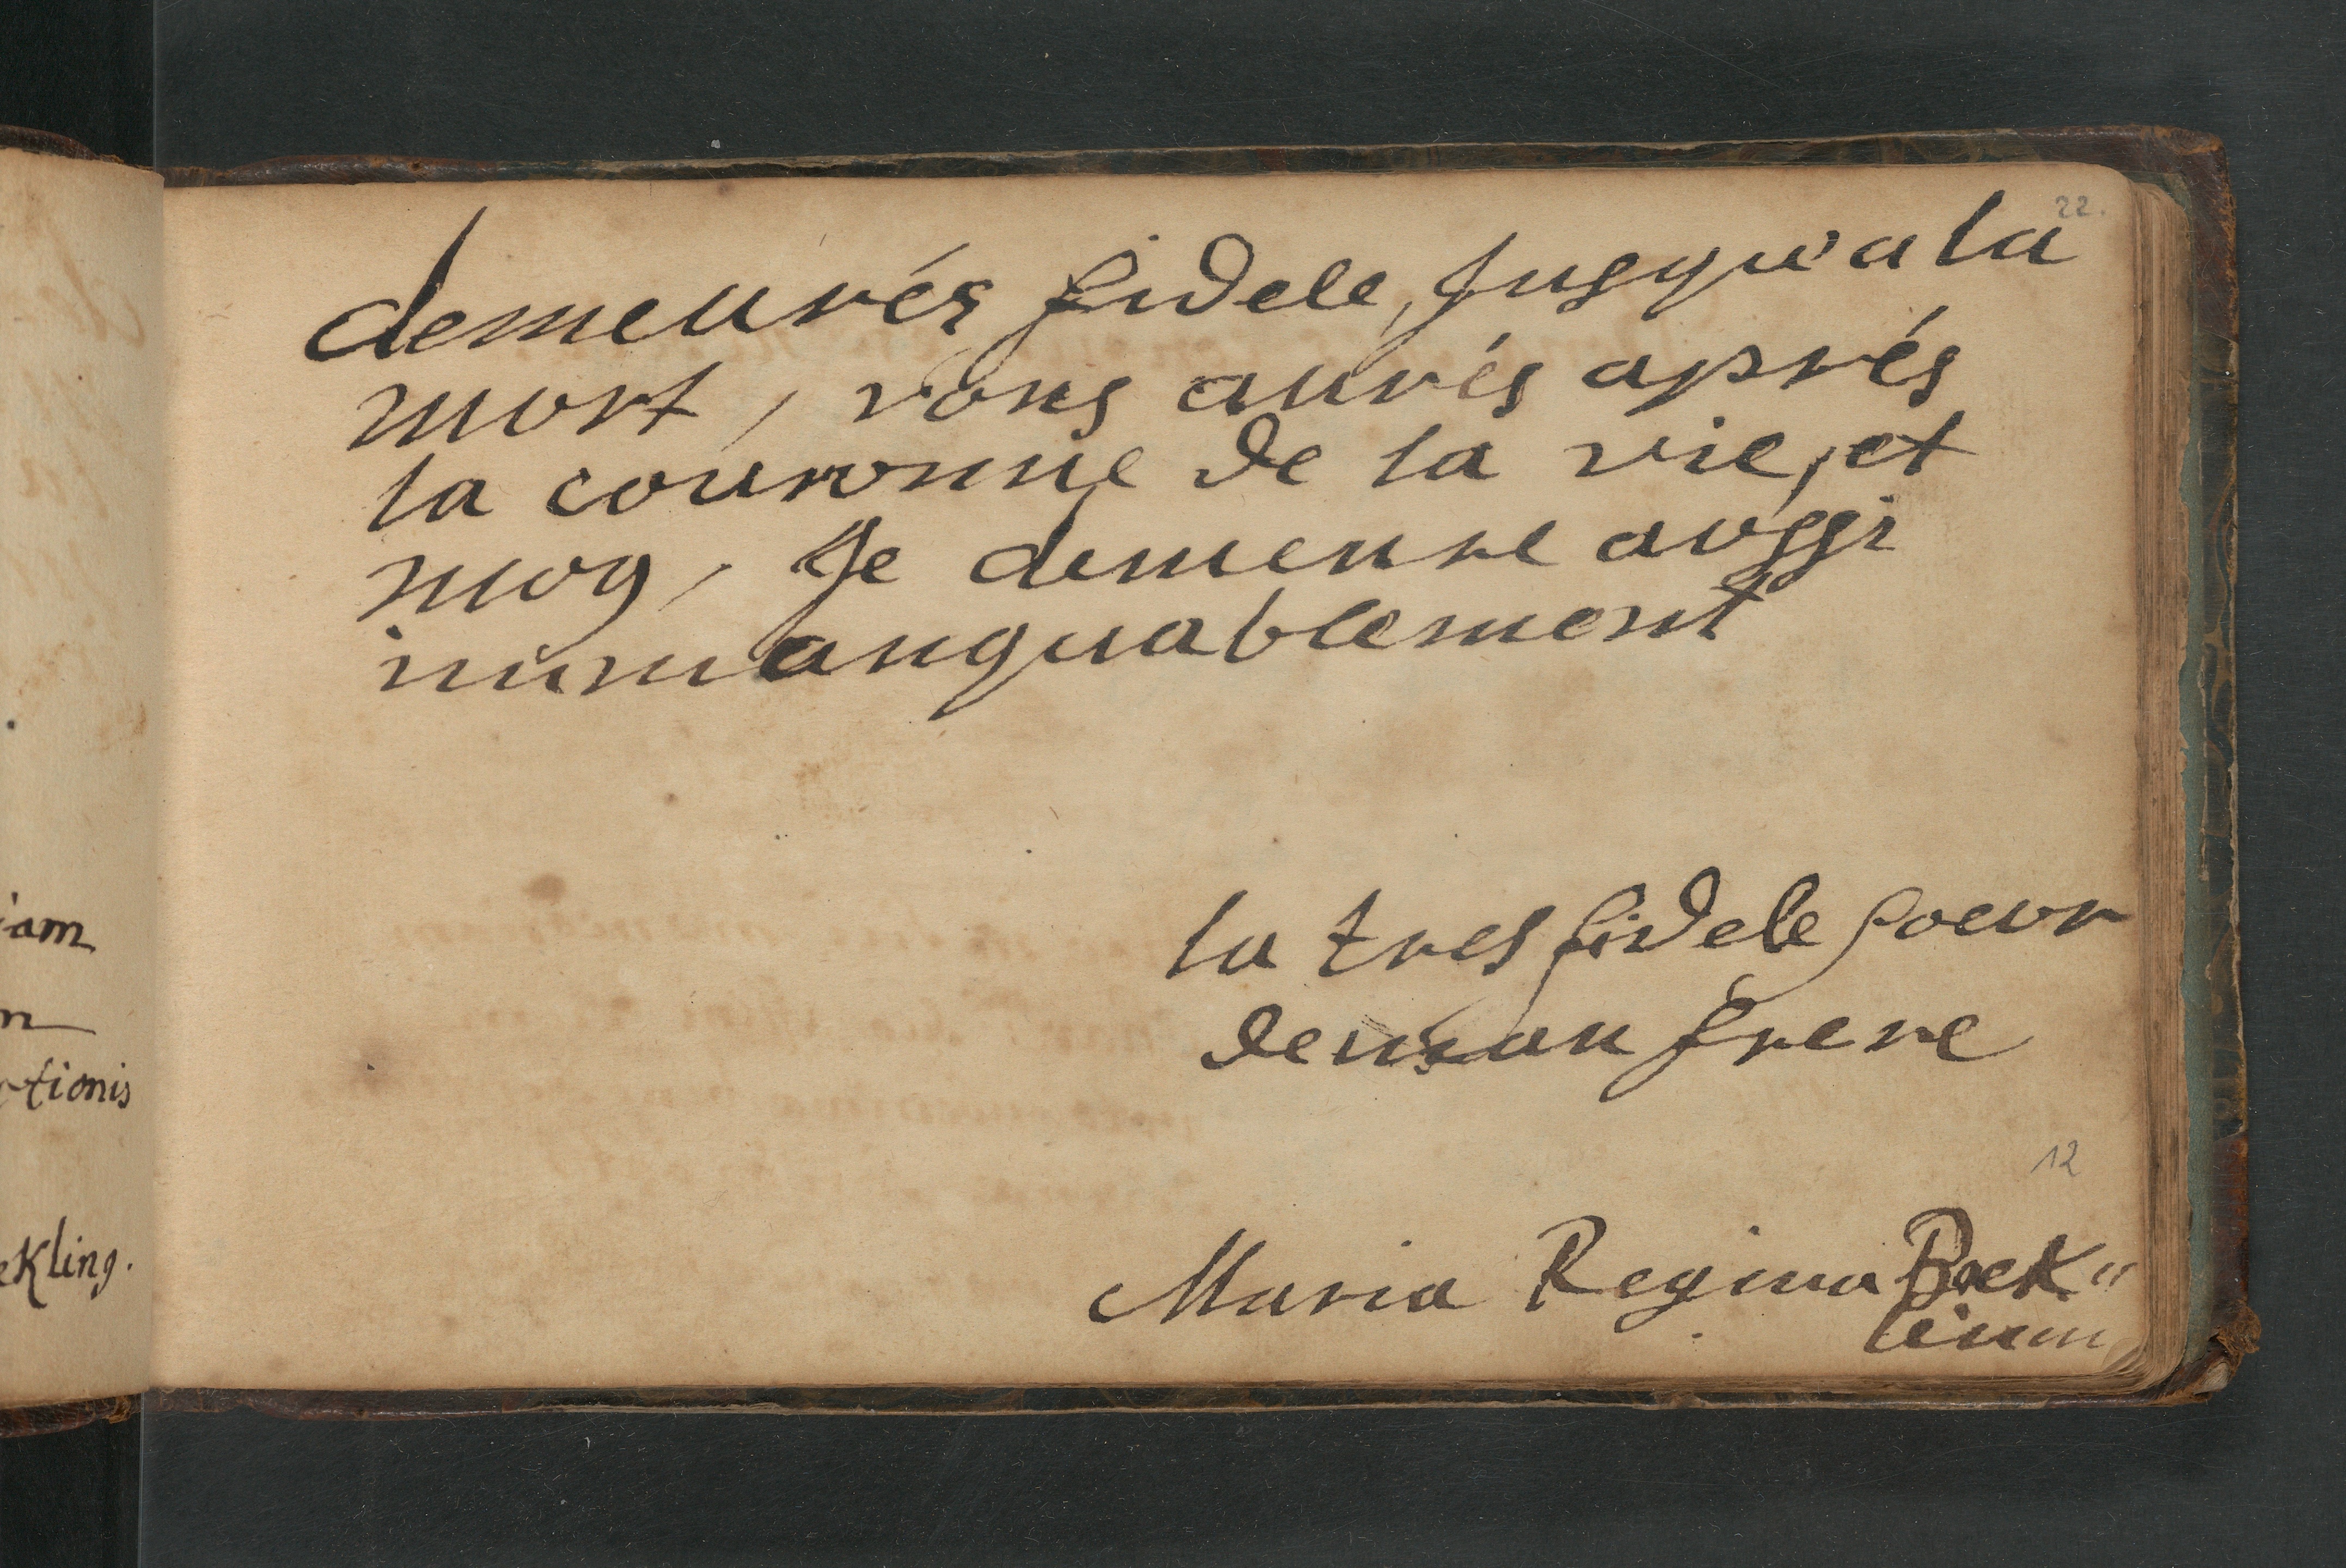 iam
m
ctionis
ekling.
22.
demeurés fidele, Jusqu'a la
mort, vous aurés aprés
la couronne de la vie, et
moy, Je demeure aussi
immanquablement
la tres fidele soeur
de mon frere
12
Maria Regina Boek"
leinin